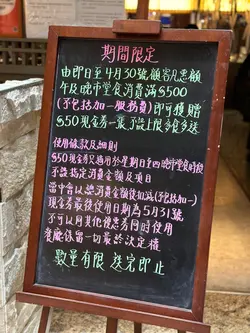 期間限定
由即日至4月30號顧客凡惠顧
午及晚市堂食消費滿$500
(不包括加一服務費)即可獲贈
$50現金券一張,不設上限多食多送
使用條款及細則
$50現金券只適用於星期日至四晚市堂食時段
不設指定消費金額及項目
當中會以總消費金額後扣減(不包括加一)
現金券最後使用日期為5月31號
不可以與其他優惠券同時使用
餐廳保留一切最終決定權
數量有限 送完即止